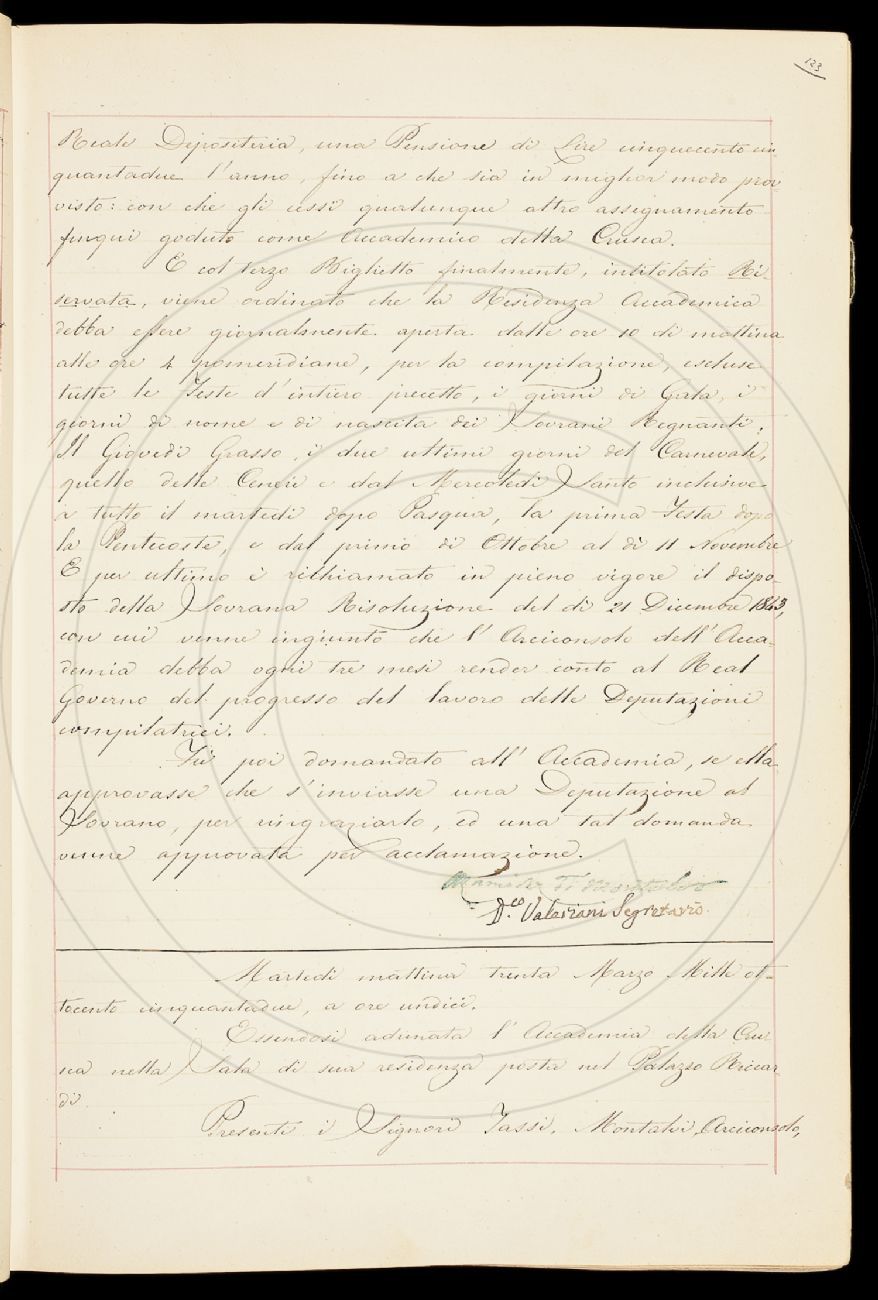 123
Reale Depositeria, una Pensione di Lire cinquecento cin-
quantadue l'anno, fino a che sia in miglior modo prov-
visto: con che gli cessi qualunque altro assegnamento
finqui goduto come Accademico della Crusca.
E col terzo Biglietto finalmente, intitolato Ri-
servata, viene ordinato che la Residenza Accademica
debba essere giornalmente aperta dalle ore 10 di mattina
alle ore 4 pomeridiane, per la compilazione, escluse
tutte le Feste d'intiero precetto, i giorni di Gala, i
giorni di nome e di nascita dei Sovrani Regnanti;
Il Giovedì Grasso, i due ultimi giorni del Carnevale,
quello delle Ceneri e dal Mercoledì Santo inclusive
a tutto il martedì dopo Pasqua, la prima Festa dopo
la Pentecoste, e dal primo di Ottobre al dì 11 Novembre
E per ultimo è richiamato in pieno vigore il dispo-
sto della Sovrana Risoluzione del dì 21 Dicembre 1843,
con cui venne ingiunto che l'Arciconsolo dell'Acca-
demia debba ogni tre mesi render conto al Real
Governo del progresso del lavoro delle Deputazioni
compilatrici.
Fu poi domandato all'Accademia, se ella
approvasse che s'inviasse una Deputazione al
Sovrano, per ringraziarlo, ed una tal domanda
venne approvata per acclamazione.
D.co Valeriani Segretario
Martedì mattina trenta Marzo Mille ot-
tocento cinquantadue, a ore undici.
Essendosi adunata l'Accademia della Cru-
sca nella Sala di sua residenza posta nel Palazzo Riccar-
di
Presenti i Signori Tassi, Montalvi Arciconsolo,